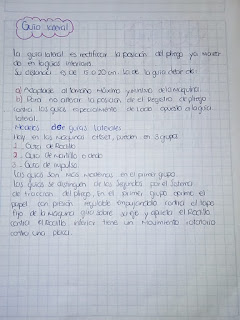 Guia lateral
la guia lateral es rectificar la posición del pliego ya marca
do en las guias frontales.
Su distancia es de 15 a 20 cm la de la guia debe de
a) Adaptarse al tamaño Máximo y minimo de la Maquina
b) Para no alterar la posición de el Registro de pliego
contra las guias especialmente de lado opuesto a la guia
lateral.
Modelos de guias laterales
Hay en las Maquinas offset, pueden en 3 grupo
1. Guia de Rodillo
2. Guia de Martillo o
3. Guia de Impulso
Las guias son Mas Modernas en el primer grupo
las guias se distinguen de las Segundas por el Sistema
de traccion del pliego. En el primer grupo oprime el
papel con presion regulable empujandolo contra el tope
fijo de la Maquina gira sobre su eje y aprieta el Rodillo
contra el Rodillo inferior tiene un Movimiento rotatorio
contra una placa.